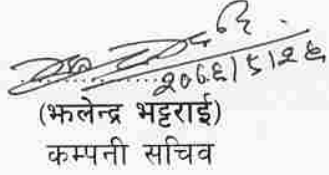 २०६६।५।२६
(झलेन्द्र भट्टराई)
कम्पनी सचिव